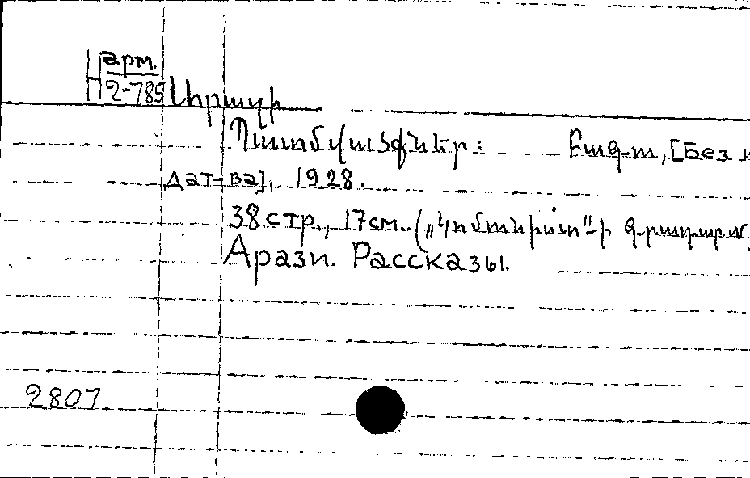 арм.
Н 2-785 Արազի
Պատմվածքներ: Բագու, [Без
дат-ва], 1928.
38 стр., 17см. („Կոմունիստ"-ի գրադար
Арази. Рассказы.
2807